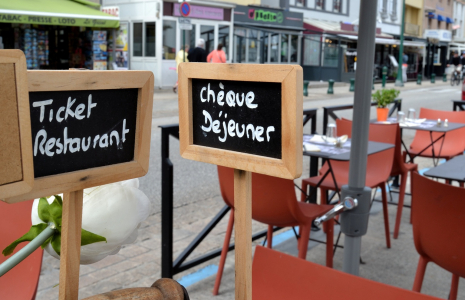 TABAC PRESSE - LOTO
Ticket
Restaurant
chèque
Déjeuner